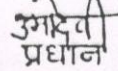 उमादेवी
प्रधान